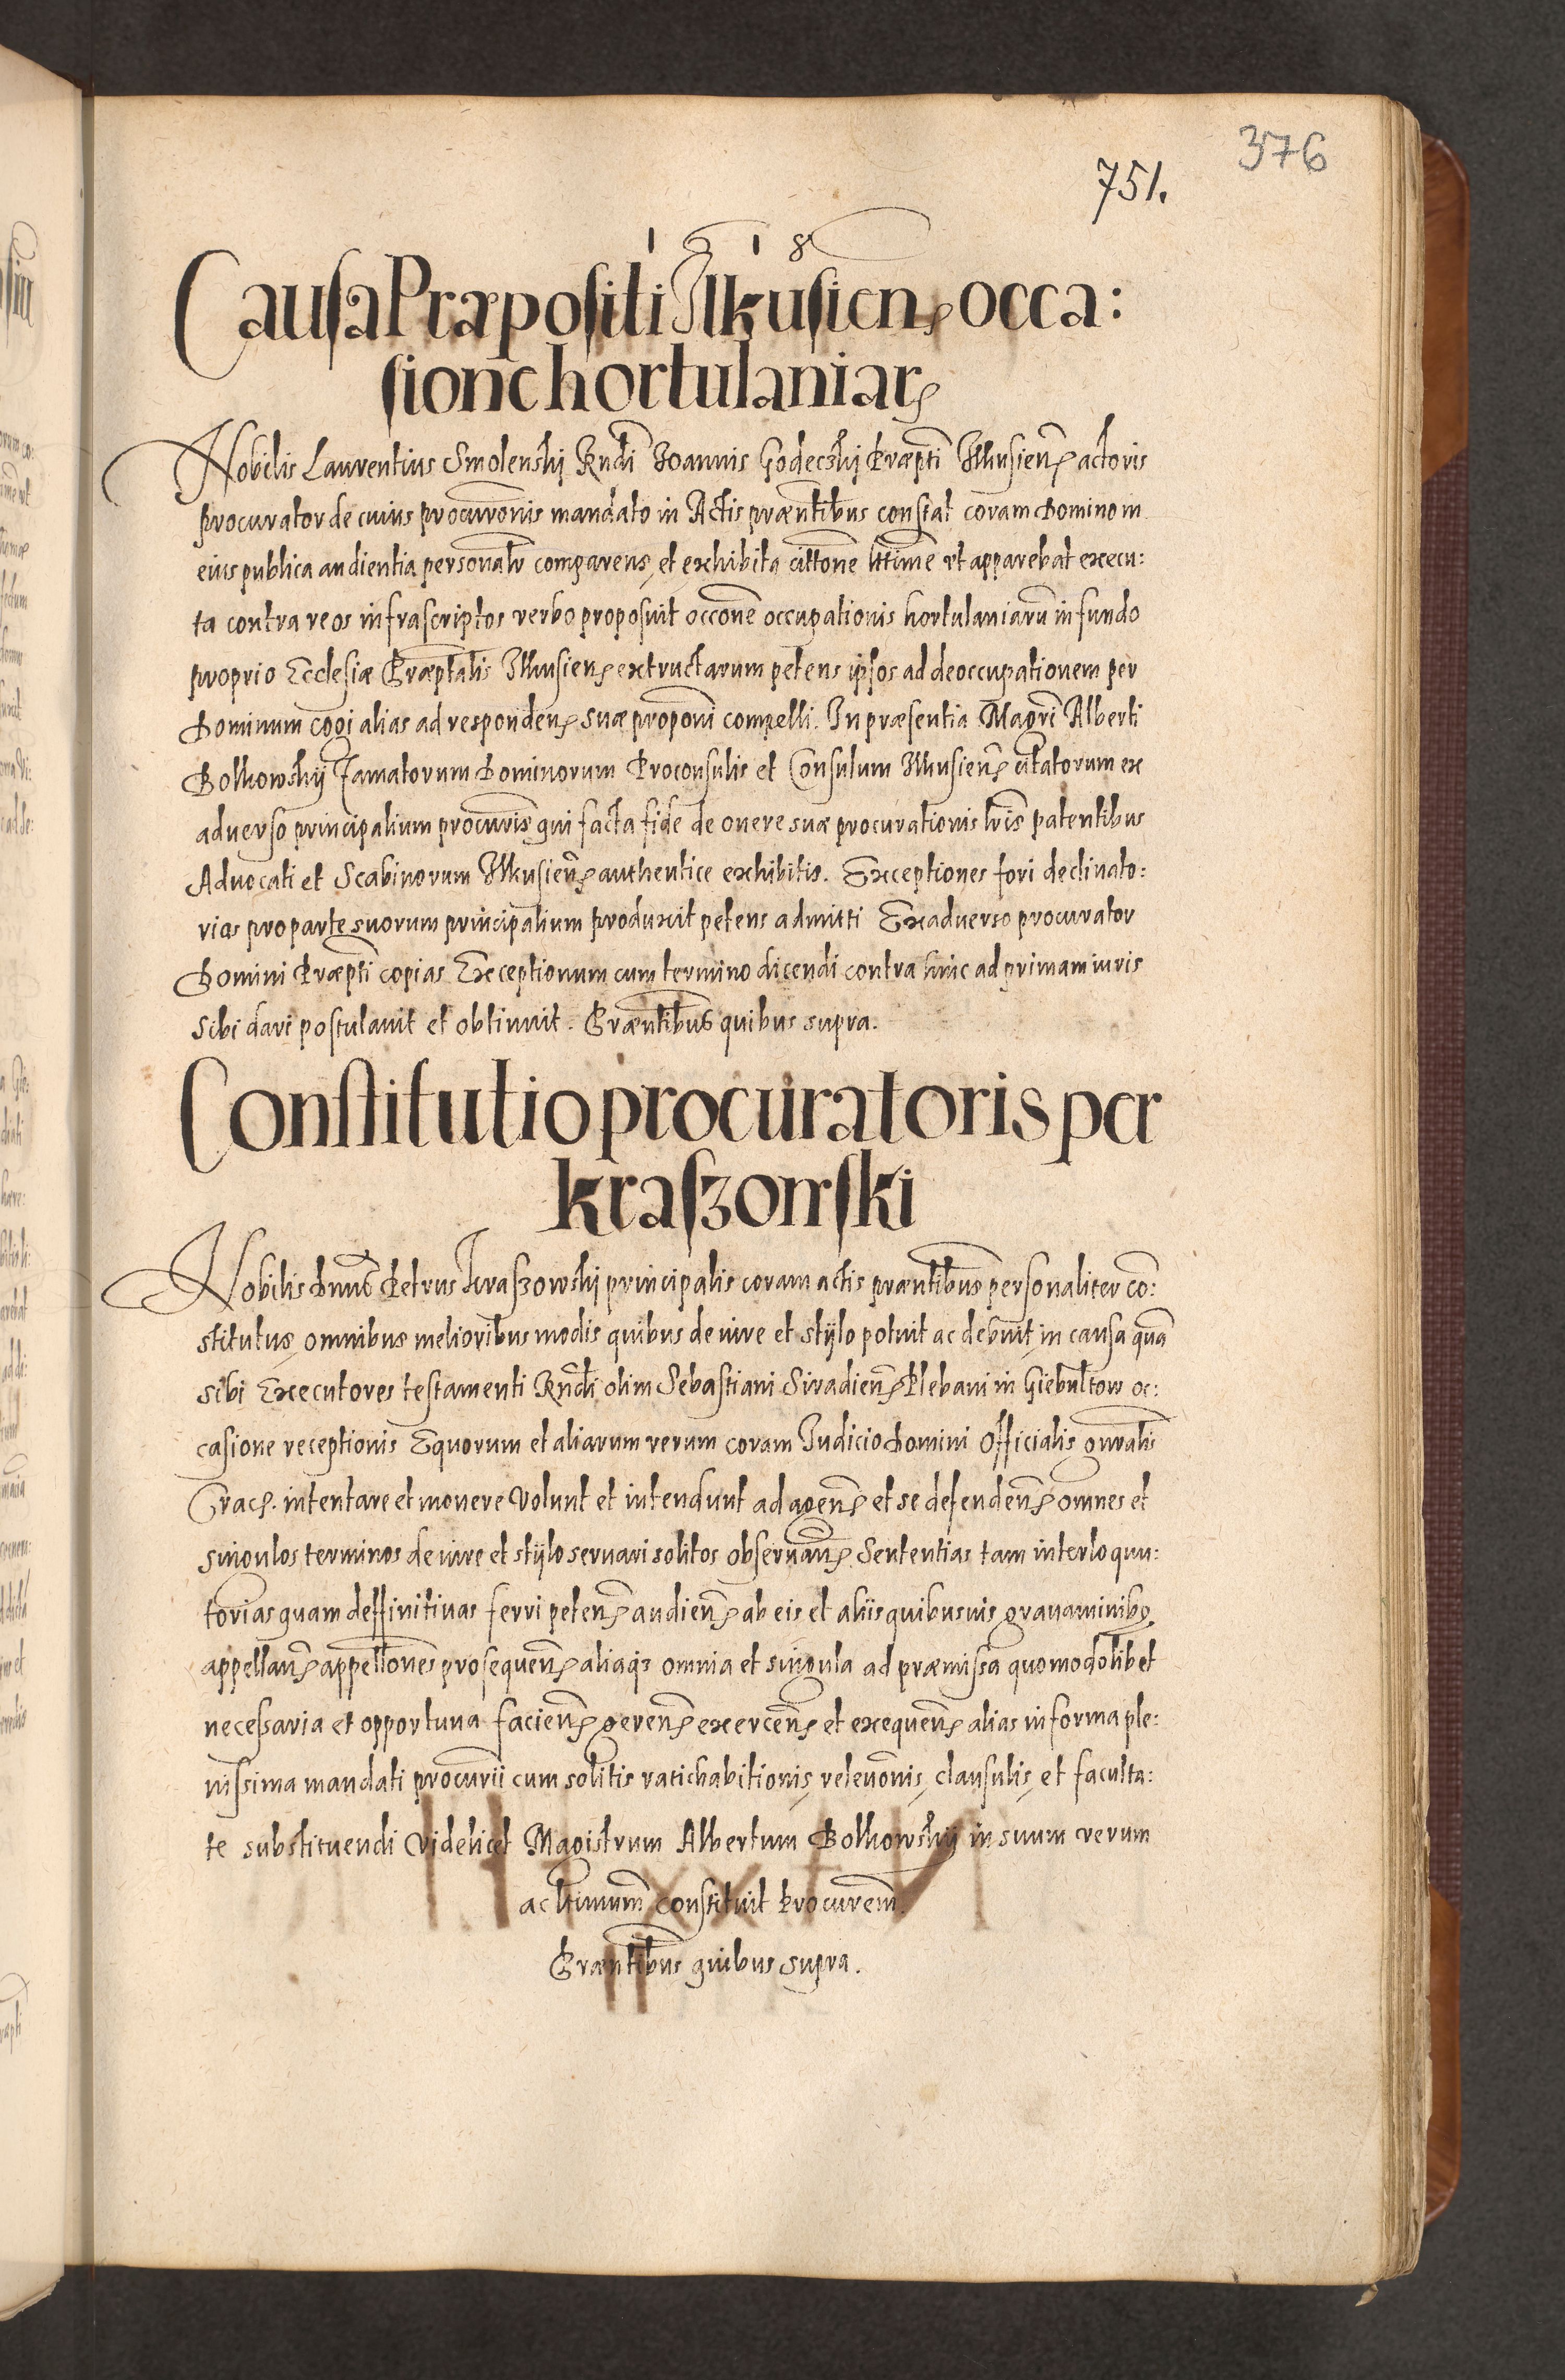 376
751.
Causa Præpositi Ilkusien occa:
sione hortulaniar
Nobilis Laurentius Smolenski Rndi Joannis Godecski Præpti Ilkusien actoris
procurator de cuius procuronis mandato in Actis præntibus constat coram Domino in
eius publica audientia personalr comparens, et exhibita cittone lttime ut apparebat execu:
ta contra reos infrascriptos verbo proposuit occone occupationis hortulaniaru in fundo
proprio Ecclesiæ Præptalis Ilkusien extructarum petens ipsos ad deoccupationem per
Dominum cogi alias ad responden suæ proponi compelli. In præsentia Magri Alberti
Bolkowskij Famatorum Dominorum Proconsulis et Consulum Ilkusien citatorum ex
aduerso principalium procuris qui facta fide de onere suæ procurationis lris patentibus
Advocati et Scabinorum Ilkusien authentice exhibitis. Exceptiones fori declinato:
rias pro parte suorum principalium produxit petens admitti Ex aduerso procurator
Domini Præpti copias Exceptionum cum termino dicendi contra hinc ad primam iuris
sibi dari postulauit et obtinuit. Præntibus quibus supra.
Constitutio procuratoris per
Kraszowski
Nobilis dnus Petrus Kraszowski principalis coram actis præntibus personaliter co:
stitutus, omnibus melioribus modis quibus de iure et stylo potuit ac debuit, in causa qua
sibi Executores testamenti Rndi olim Sebastiani Siradien Plebani in Giebultow oc:
casione receptionis Equorum et aliarum rerum coram Judicio Domini Officialis gnralis
Crac. intentare et mouere volunt et intendunt ad agen et se defenden omnes et
singulos terminos de iure et stylo seruari solitos obseruan Sententias tam interloquu:
torias quam deffinitiuas ferri peten audien ab eis et aliis quibusuis grauaminibq
appellan appellones prosequen aliaqz omnia et singula ad præmissa quomodolibet
necessaria et opportuna facien geren exercen et exequen alias in forma ple:
nissima mandati procurii cum solitis ratihabitionis, releuonis, clausulis, et faculta:
te substituendi videlicet Magistrum Albertum Bolkowskij in suum verum
ac ltimum constituit Procurem.
Præntibus quibus supra.